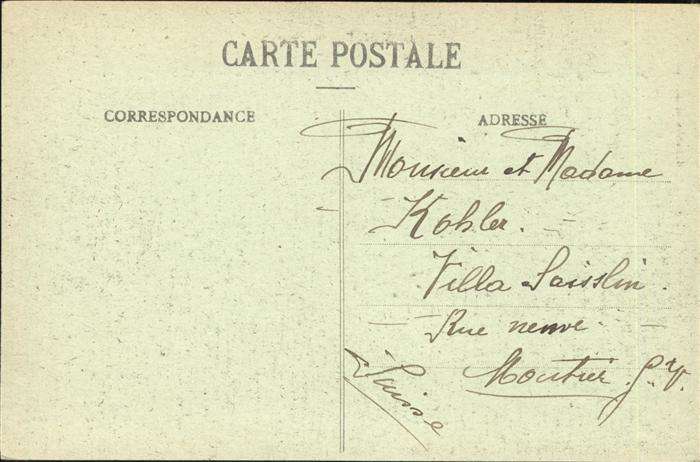 CARTE POSTALE
CORRESPONDANCE
ADRESSE
Monsieur et Madame
Kohler.
Villa Saisslin.
Rue neuve.
Moutier G.V.
Suisse